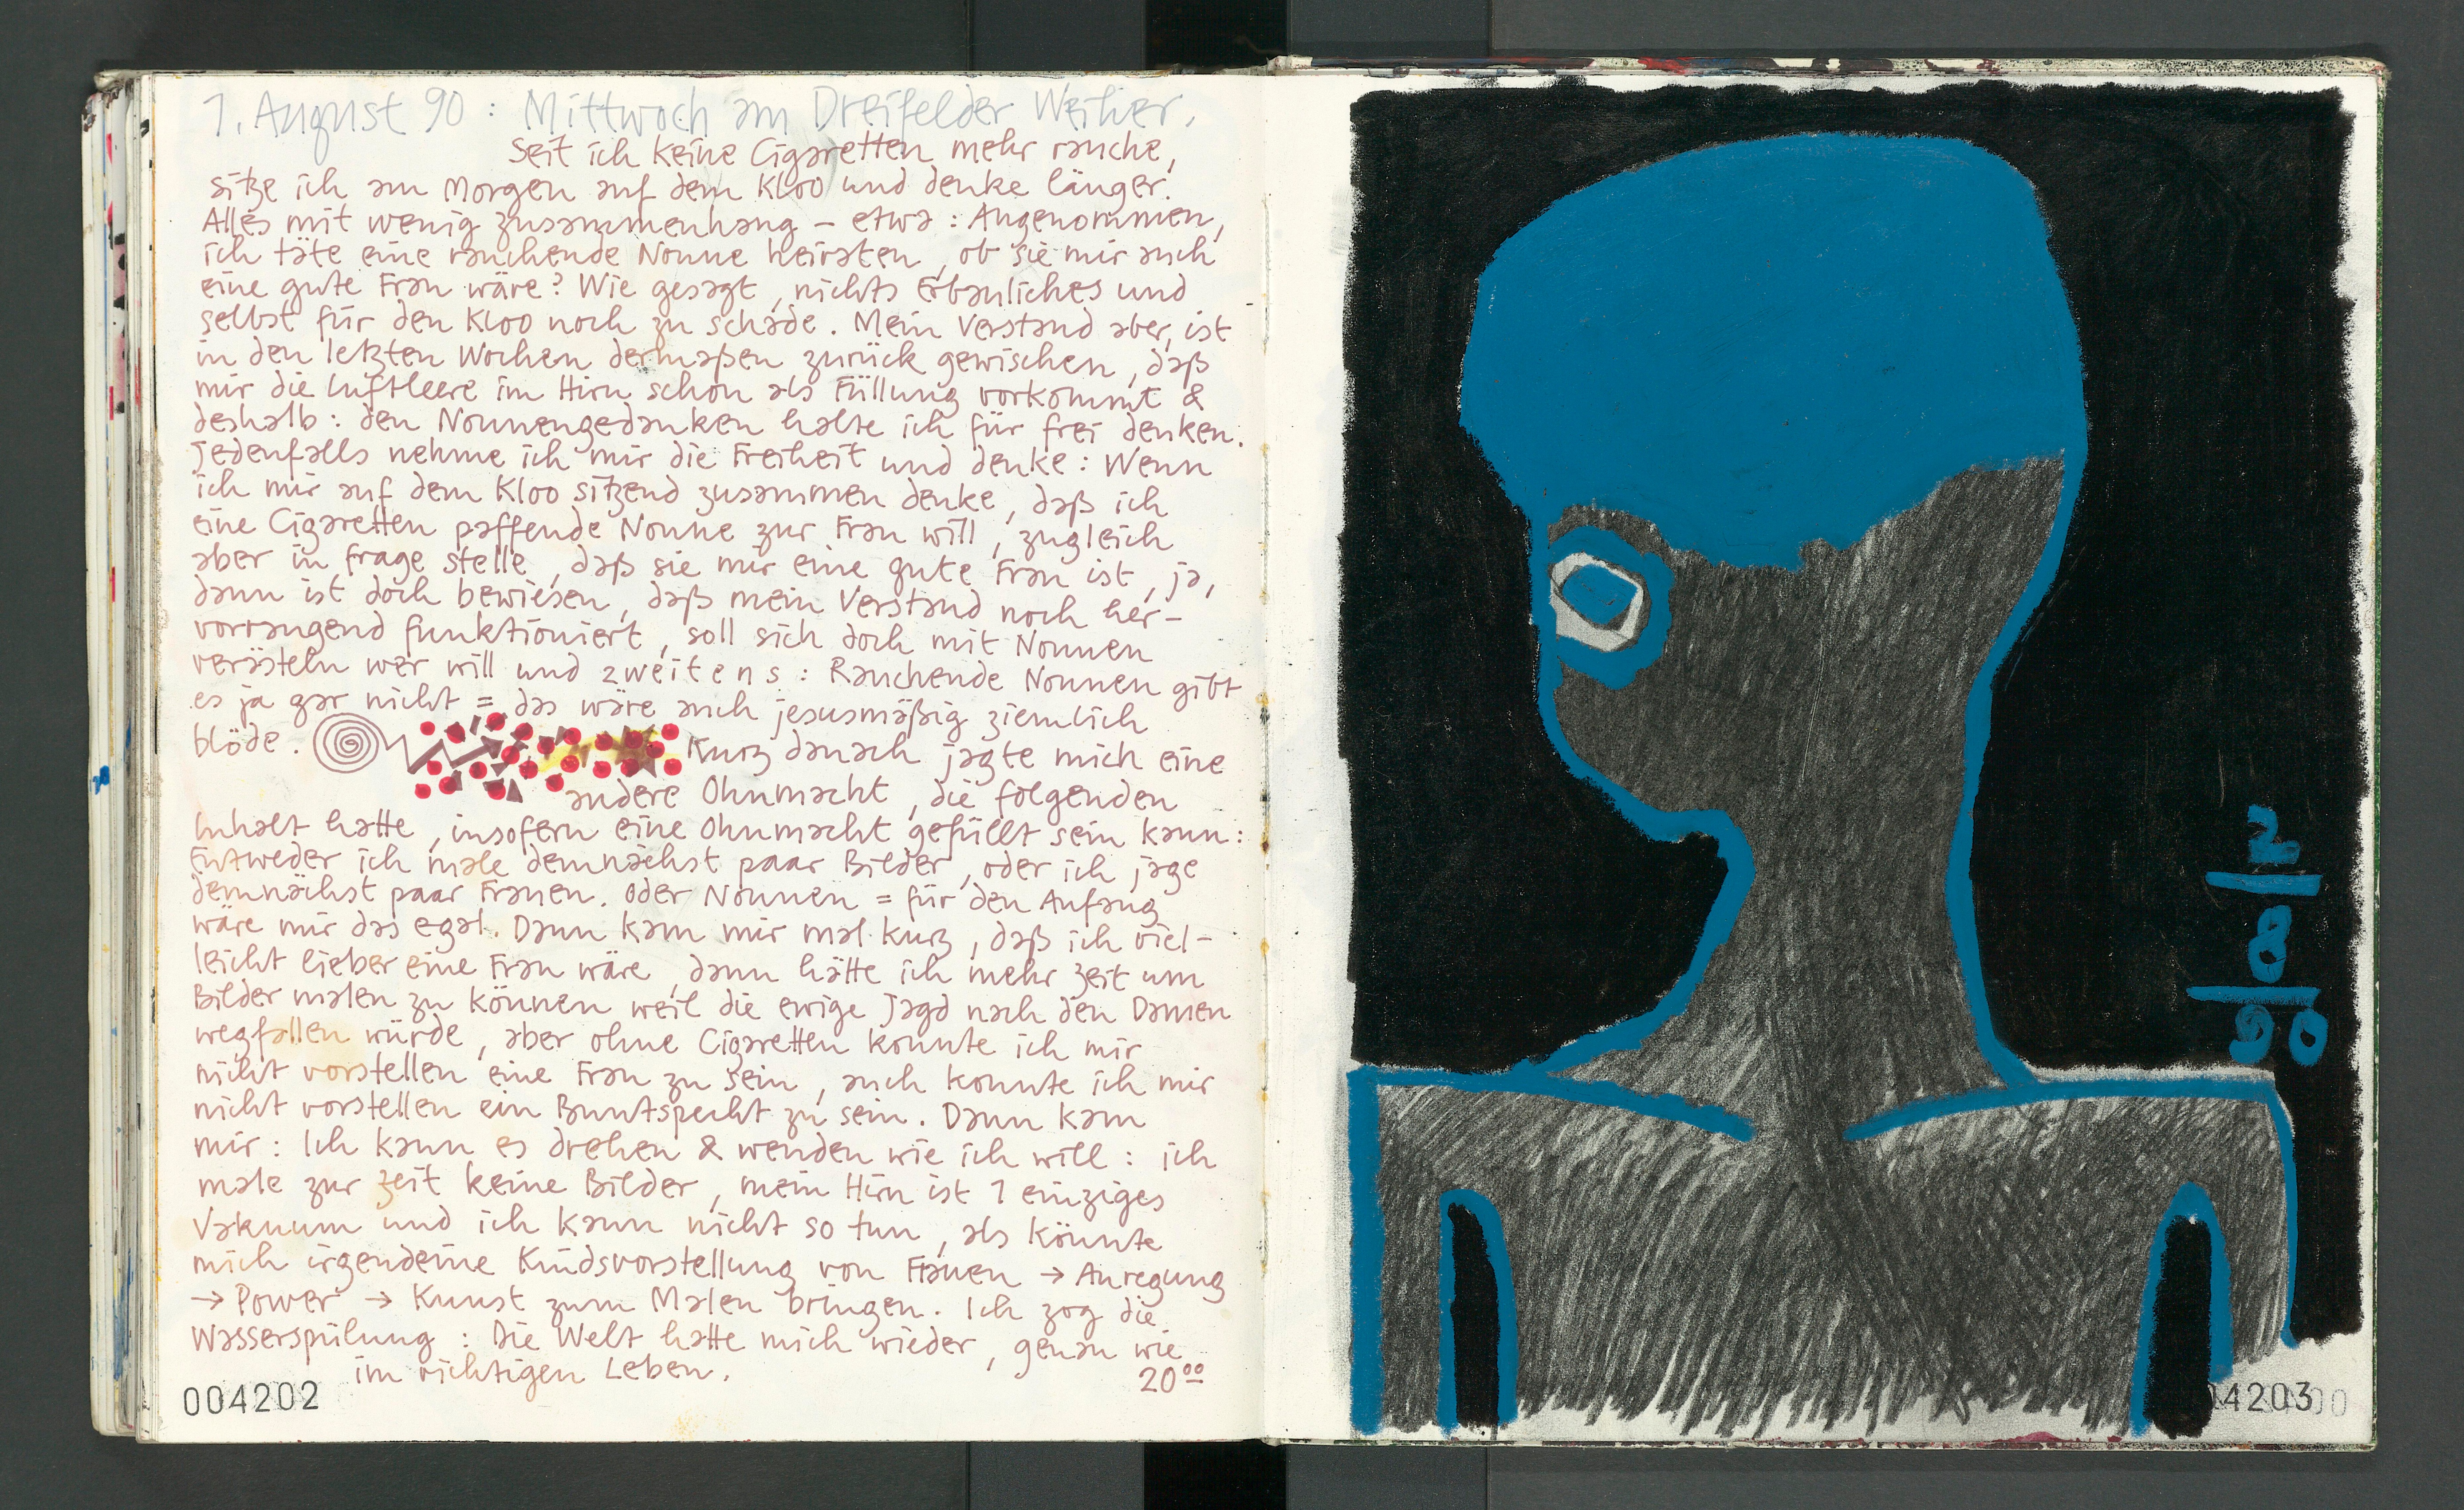 1. August 90 : Mittwoch am Dreifelder Weiher.
Seit ich keine Cigaretten mehr rauche,
sitze ich am Morgen auf dem Kloo und denke länger.
Alles mit wenig zusammenhang – etwa : Angenommen,
ich täte eine rauchende Nonne heiraten, ob sie mir auch
eine gute Frau wäre? Wie gesagt, nichts Erbauliches und
selbst für den Kloo noch zu schade. Mein Verstand aber, ist
in den letzten Wochen dermaßen zurück gewischen, daß
mir die Luftleere im Hirn schon als Füllung vorkommt &
deshalb : den Nonnengedanken halte ich für frei denken.
Jedenfalls nehme ich mir die Freiheit und denke : Wenn
ich mir auf dem Kloo sitzend zusammen denke, daß ich
eine Cigaretten paffende Nonne zur Frau will, zugleich
aber in frage stelle, daß sie mir eine gute Frau ist, ja,
dann ist doch bewiesen, daß mein Verstand noch her-
vorragend funktioniert, soll sich doch mit Nonnen
verästeln wer will und zweitens : Rauchende Nonnen gibt
es ja gar nicht = das wäre auch jesusmäßig ziemlich
blöde. Kurz danach jagte mich eine
andere Ohnmacht, die folgenden
Inhalt hatte, insofern eine Ohnmacht gefüllt sein kann :
Entweder ich male demnächst paar Bilder, oder ich jage
demnächst paar Frauen. Oder Nonnen = für den Anfang
wäre mir das egal. Dann kam mir mal kurz, daß ich viel-
leicht lieber eine Frau wäre, dann hätte ich mehr Zeit um
Bilder malen zu können weil die ewige Jagd nach den Damen
wegfallen würde, aber ohne Cigaretten konnte ich mir
nicht vorstellen eine Frau zu sein, auch konnte ich mir
nicht vorstellen ein Buntspecht zu sein. Dann kam
mir : Ich kann es drehen & wenden wie ich will : ich
male zur Zeit keine Bilder, mein Hirn ist 1 einziges
Vakuum und ich kann nicht so tun, als könnte
mich irgendeine Kindsvorstellung von Frauen → Anregung
→ Power → Kunst zum Malen bringen. Ich zog die
Wasserspülung : Die Welt hatte mich wieder, genau wie
im richtigen Leben. 20⁰⁰
004202
2
8
90
4203